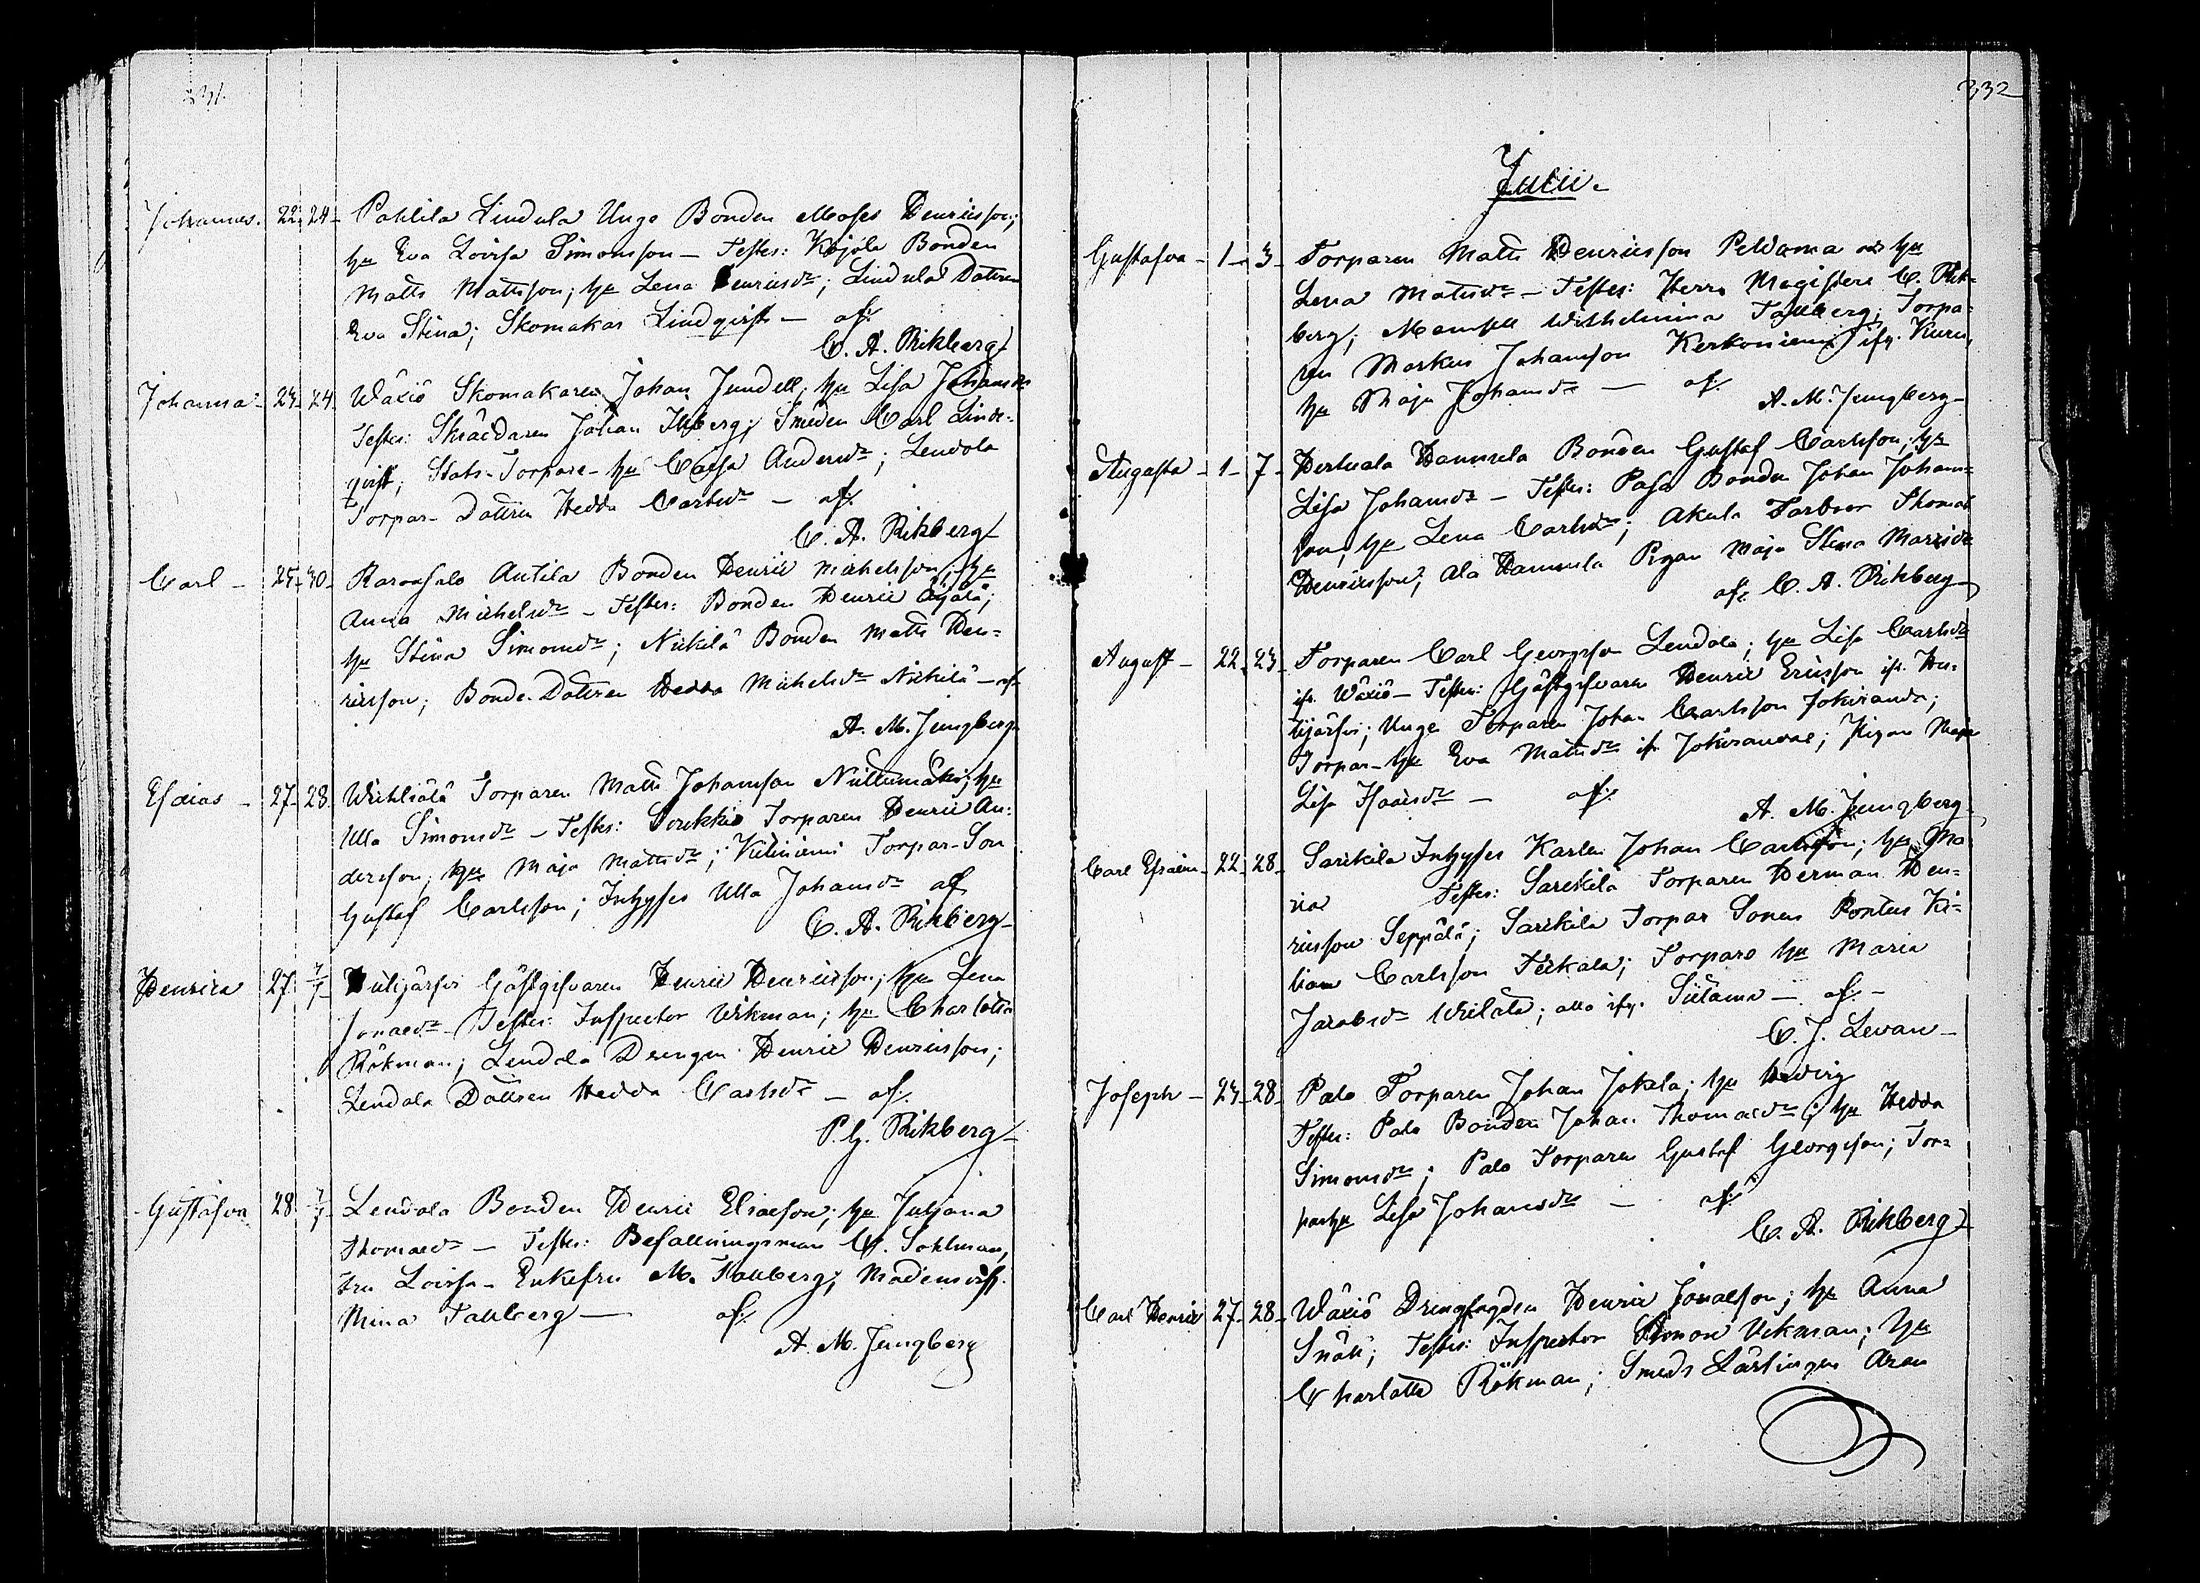 331.
Johannes. 22. 24. Pahlila Lindula Unge Bonden Moses Henricsson;
hu Eva Lovisa Simonsson — Testes: Kojola Bonden
Matts Mattsson; hu Lena Henricsdr; Lindula Dottren
Eva Stina; Skomakar Lindqvist — af.
C. A. Rikberg
Johanna - 23. 24. Wäxiö Skomakaren Johan Jundell; hu Lisa Johansdr
Testes: Skräddaren Johan Itberg; Smeden Carl Lind-
qvist; Stats-Torpare-hu Caisa Andersdr; Lendola
Torpar-Dottren Hedda Carlsdr — af.
C. A. Rikberg
Carl - 25. 30. Karonsalo Antila Bonden Henric Michelsson; hu
Anna Michelsdr — Testes: Bonden Henric Äijälä;
hu Stina Simonsdr; Nickilä Bonden Matts Hen-
ricsson; Bonde-Dottren Hedda Michelsdr Nickilä — af.
A. M. Jungberg
Esaias - 27. 28. Torparen Matts Johansson Niittumäki; hu
Ulla Simonsdr — Testes: Torparen Henric An-
dersson; hu Maja Mattsdr; Kiliniemi Torpar-Son
Gustaf Carlsson; Inhyses Ulla Johansdr af
C. A. Rikberg
Henrica 27. 7/7 Hulijärfvi Gästgifvaren Henric Henricsson; hu Lena
Jonaedr — Testes: Inspector Wikman; hu Charlotta
Rökman; Lendola Drengen Henric Henricsson;
Lendola Dottren Hedda Carlsdr — af.
P. G. Rikberg
Gustafva 28. 7/7 Lendola Bonden Henric Eliaeson; hu Juliana
Thomaedr — Testes: Befallningsman C. Sohlman,
Fru Lovisa - Enkefru M. Tallberg; Mademoisll.
Mina Tallberg — af.
A. M. Jungberg
332
Julii.
Gustafva - 1 - 3 - Torparen Matts Henricsson Peldoma och hu
Lena Mattsdr — Testes: Herr Magistern C. Rik-
berg; Mamsell Wilhelmina Tallberg; Torpa-
ren Markus Johansson Kerkoniemi ifr. Kuru,
hu Maja Johansdr — af.
A. M. Jungberg
Augusta - 1 - 7 - Hertuala Hannula Bonden Gustaf Carlsson; hu
Lisa Johansdr — Testes: Pasa Bonden Johan Johans-
son; hu Lena Carlsdr; Akula Farbror Thomas
Henricsson; Ala Hannula Pigan Maja Stina
af. C. A. Rikberg
August - 22. 23. Torparen Carl Georgsson Lendola; hu Lisa Carlsdr
ifr. Wäxiö — Testes: Gästgifvaren Henric Ericsson ifr. Hu-
lijärfvi; Unge Torparen Johan Carlsson Jokiranda;
Torpar-hu Eva Mattsdr ifr. Jokiranda; Pigan Maja
Lisa Isacsdr — af.
A. M. Jungberg
Carl Efraim - 22. 28. Sarikila Inhyses Karlen Johan Carlsson; hu Ma-
ria Testes: Sarikila Torparen Herman Hen-
ricsson Seppälä; Sarikila Torpar Sonen Pontus Ki-
lian Carlsson Teikala; Torpare hu Maria
Jacobsdr Wiilala; alla ifr. — af.
C. J. Levan
Joseph - 23. 28. Palo Torparen Johan Jokela; hu Hedvig
Testes: Palo Bonden Johan Thomaedr; hu Hedda
Simonsdr; Palo Torparen Gustaf Georgsson; Tor-
parhu Lisa Johansdr — af.
C. A. Rikberg
Carl Henric 27. 28. Wäxiö Drengfogden Henric Jonaeson; hu Anna
Snäll; Testes: Inspector Simon Vikman; hu
Charlotta Rökman; Smeds Lärlingen Aron